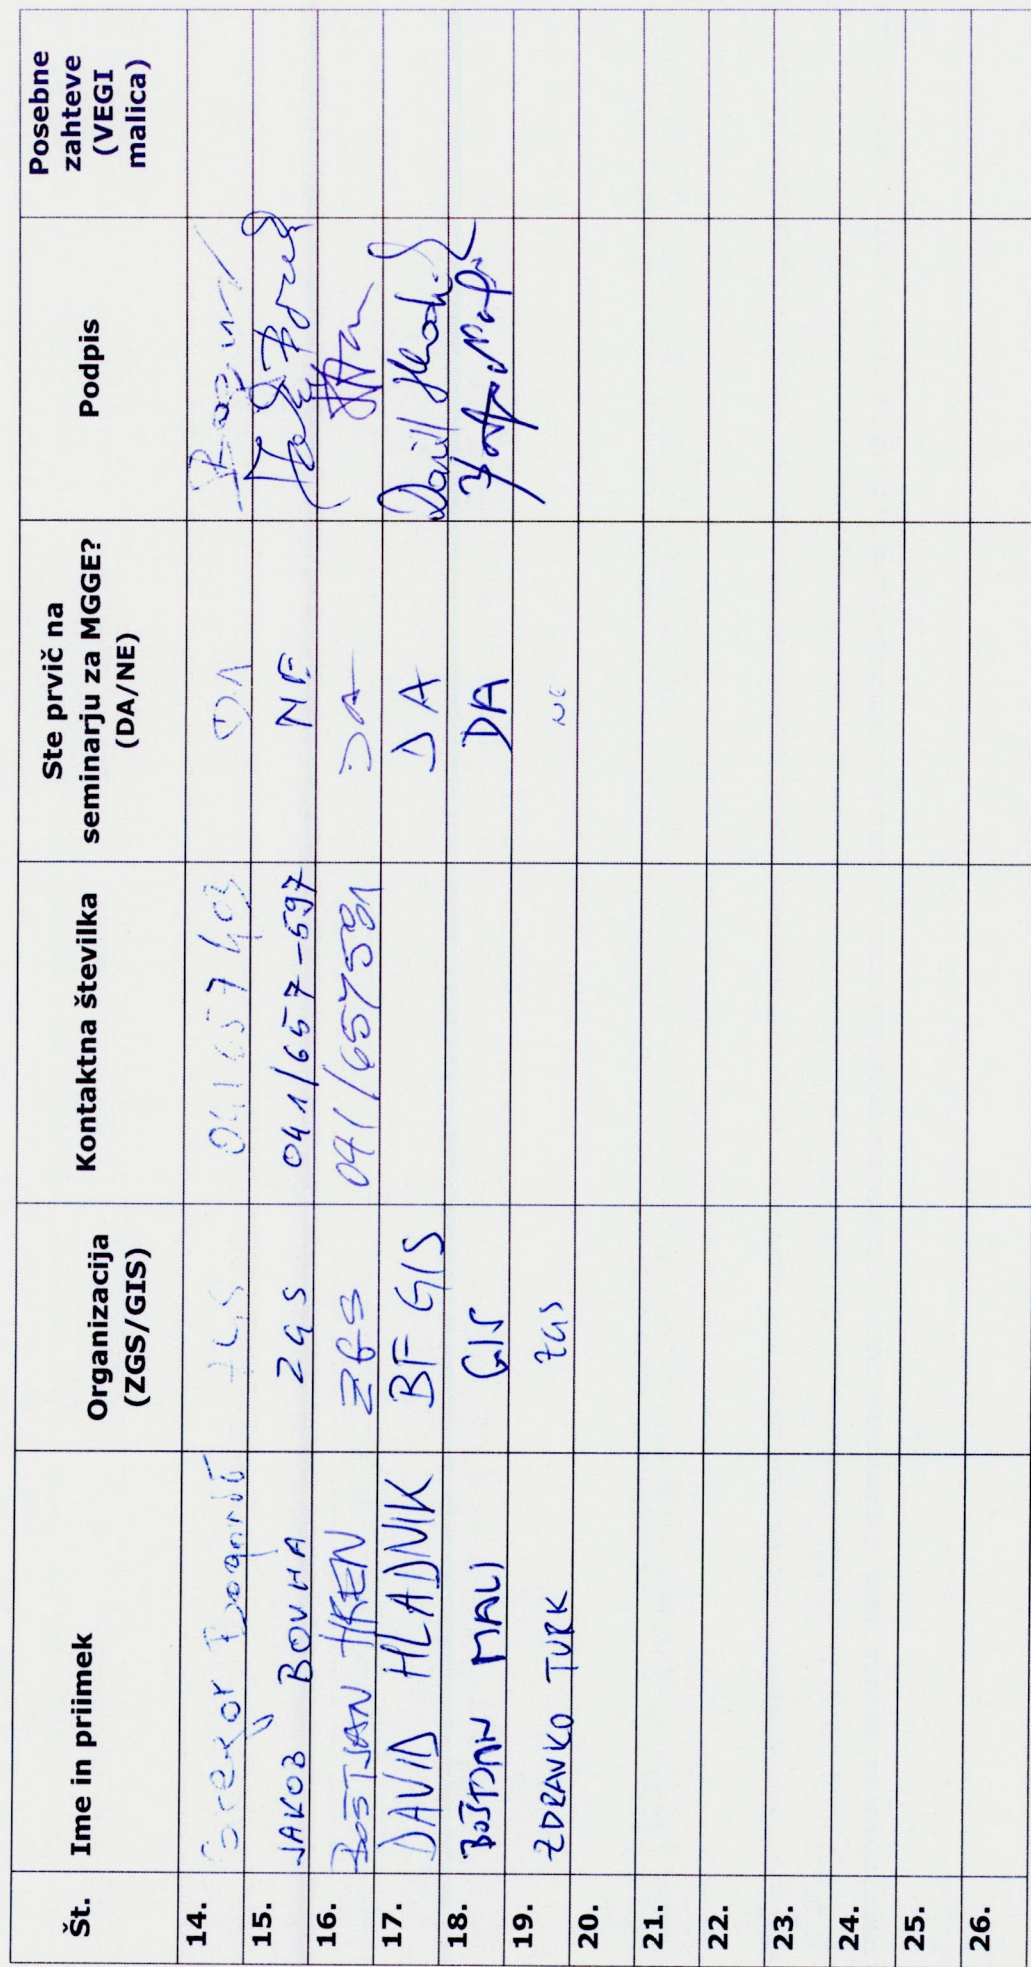 Št. Ime in priimek Organizacija (ZGS/GIS) Kontaktna številka Ste prvič na seminarju za MGGE? (DA/NE) Podpis Posebne zahteve (VEGI malica)
14. Gregor ZGS 041657403 DA
15. JAKOB BOVHA ZGS 041/657-597 NE
16. BOŠTJAN HREN ZGS 041/657591 DA
17. DAVID HLADNIK BF GIS DA David Hladnik
18. BOŠTJAN MALI GIS DA
19. ZDRAVKO TURK ZGS NE
20.
21.
22.
23.
24.
25.
26.